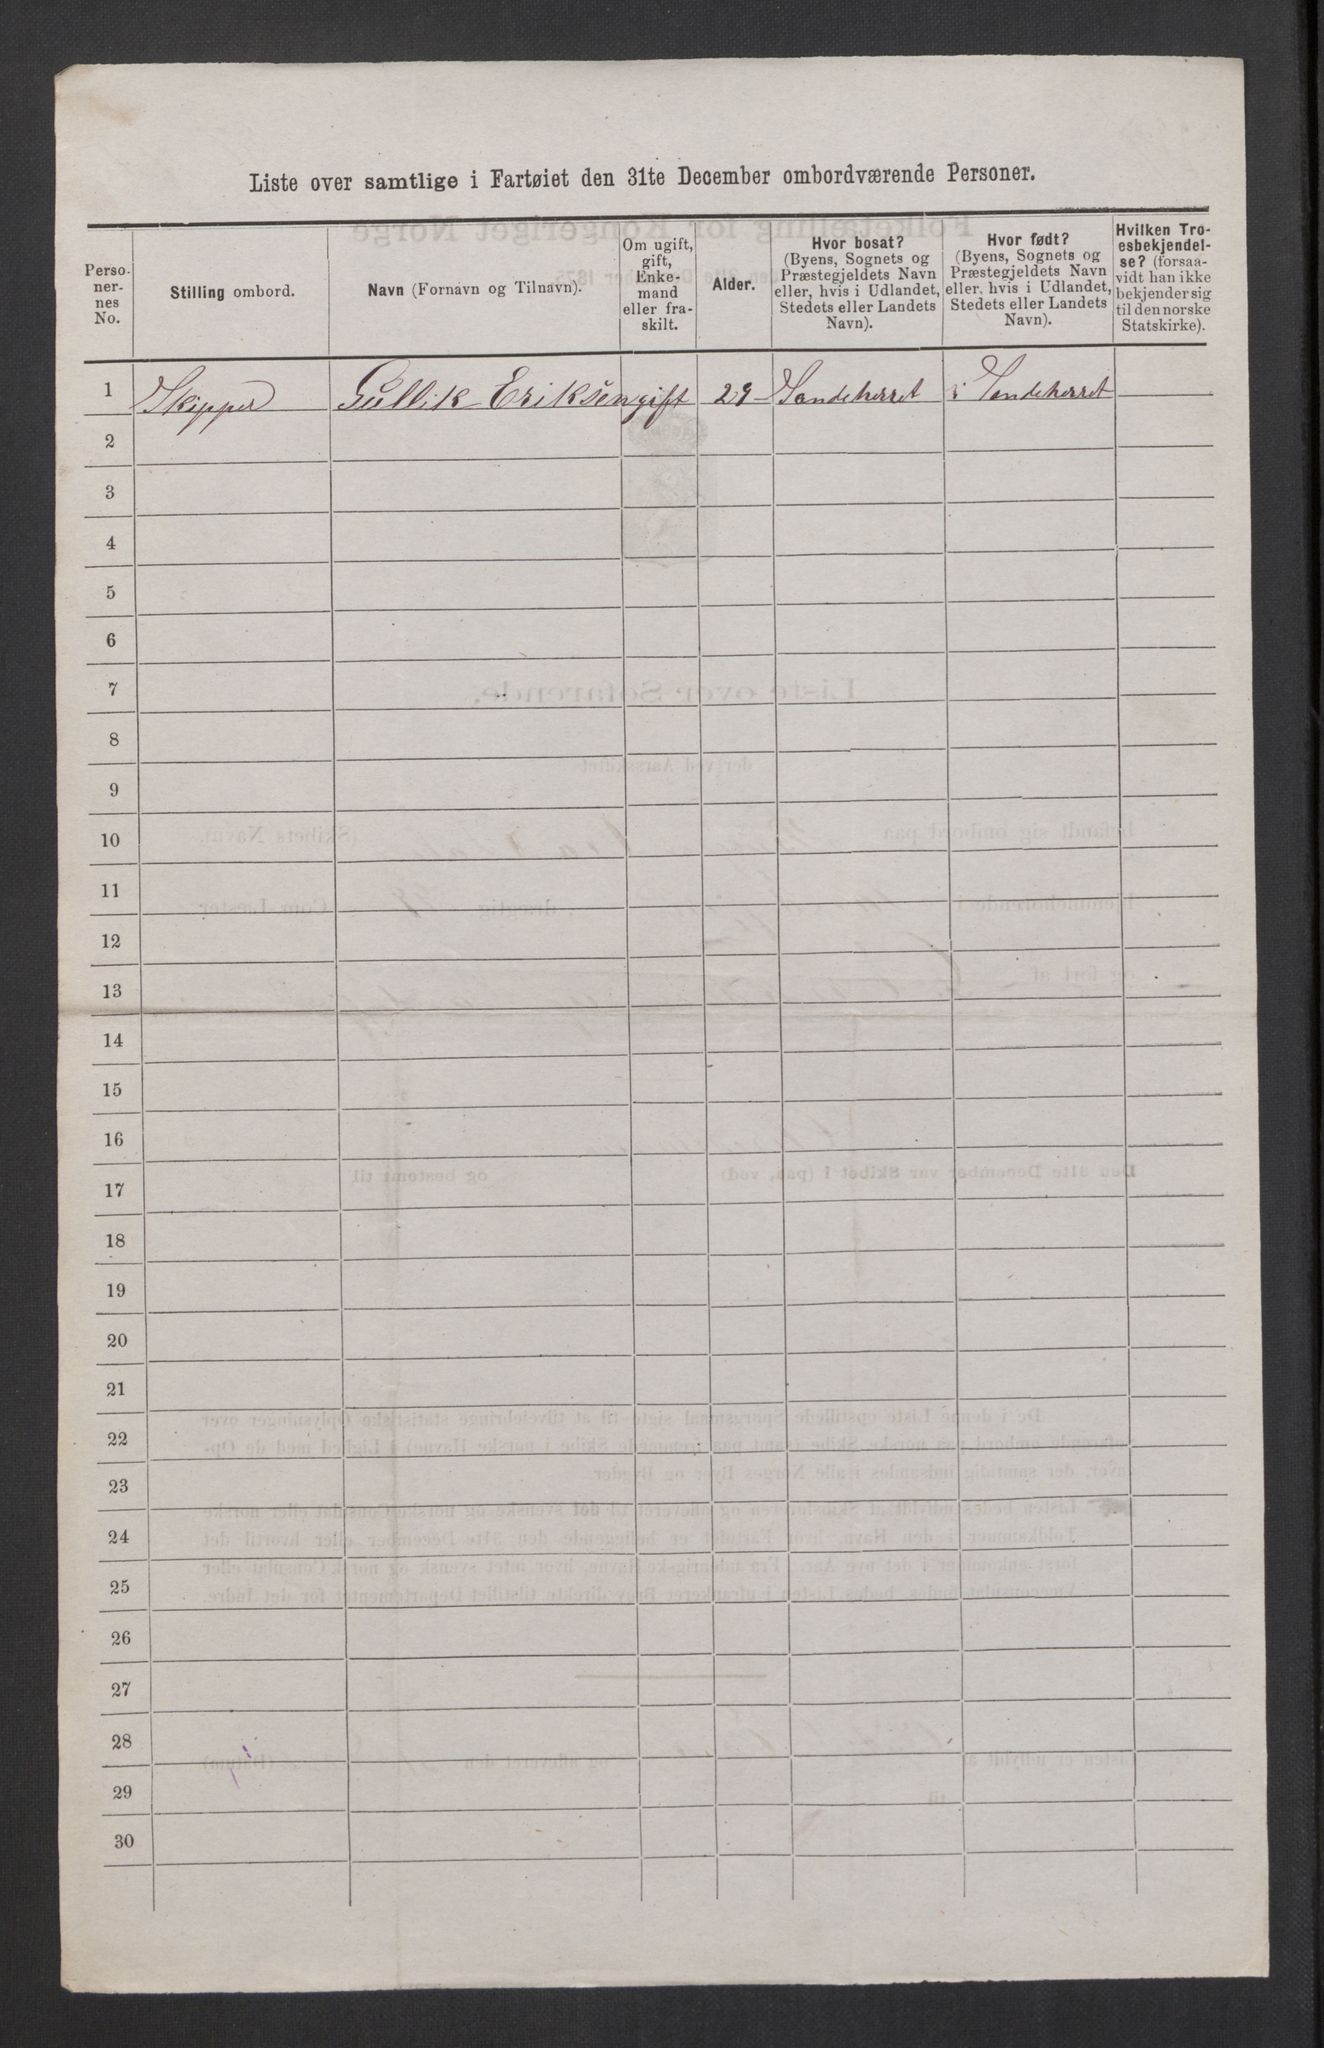 Liste over samtlige i Fartøiet den 31te December ombordværende Personer.
Perso-
ner-
nes
No.
Stilling ombord.
Navn (Fornavn og Tilnavn).
Om ugift,
gift,
Enke-
mand
eller fra-
skilt.
Alder.
Hvor bosat?
(Byens, Sognets og
Præstegjeldets Navn
eller, hvis i Udlandet,
Stedets eller Landets
Navn).
Hvor født?
(Byens, Sognets og
Præstegjeldets Navn
eller, hvis i Udlandet,
Stedets eller Landets
Navn).
Hvilken Tro-
esbekjendel-
se? (forsaa-
vidt han ikke
bekjender sig
til den norske
Statskirke).
1 Skipper Gullik Eriksen gift 29 Sandeherret i Sandeherret
2
3
4
5
6
7
8
9
10
11
12
13
14
15
16
17
18
19
20
21
22
23
24
25
26
27
28
29
30